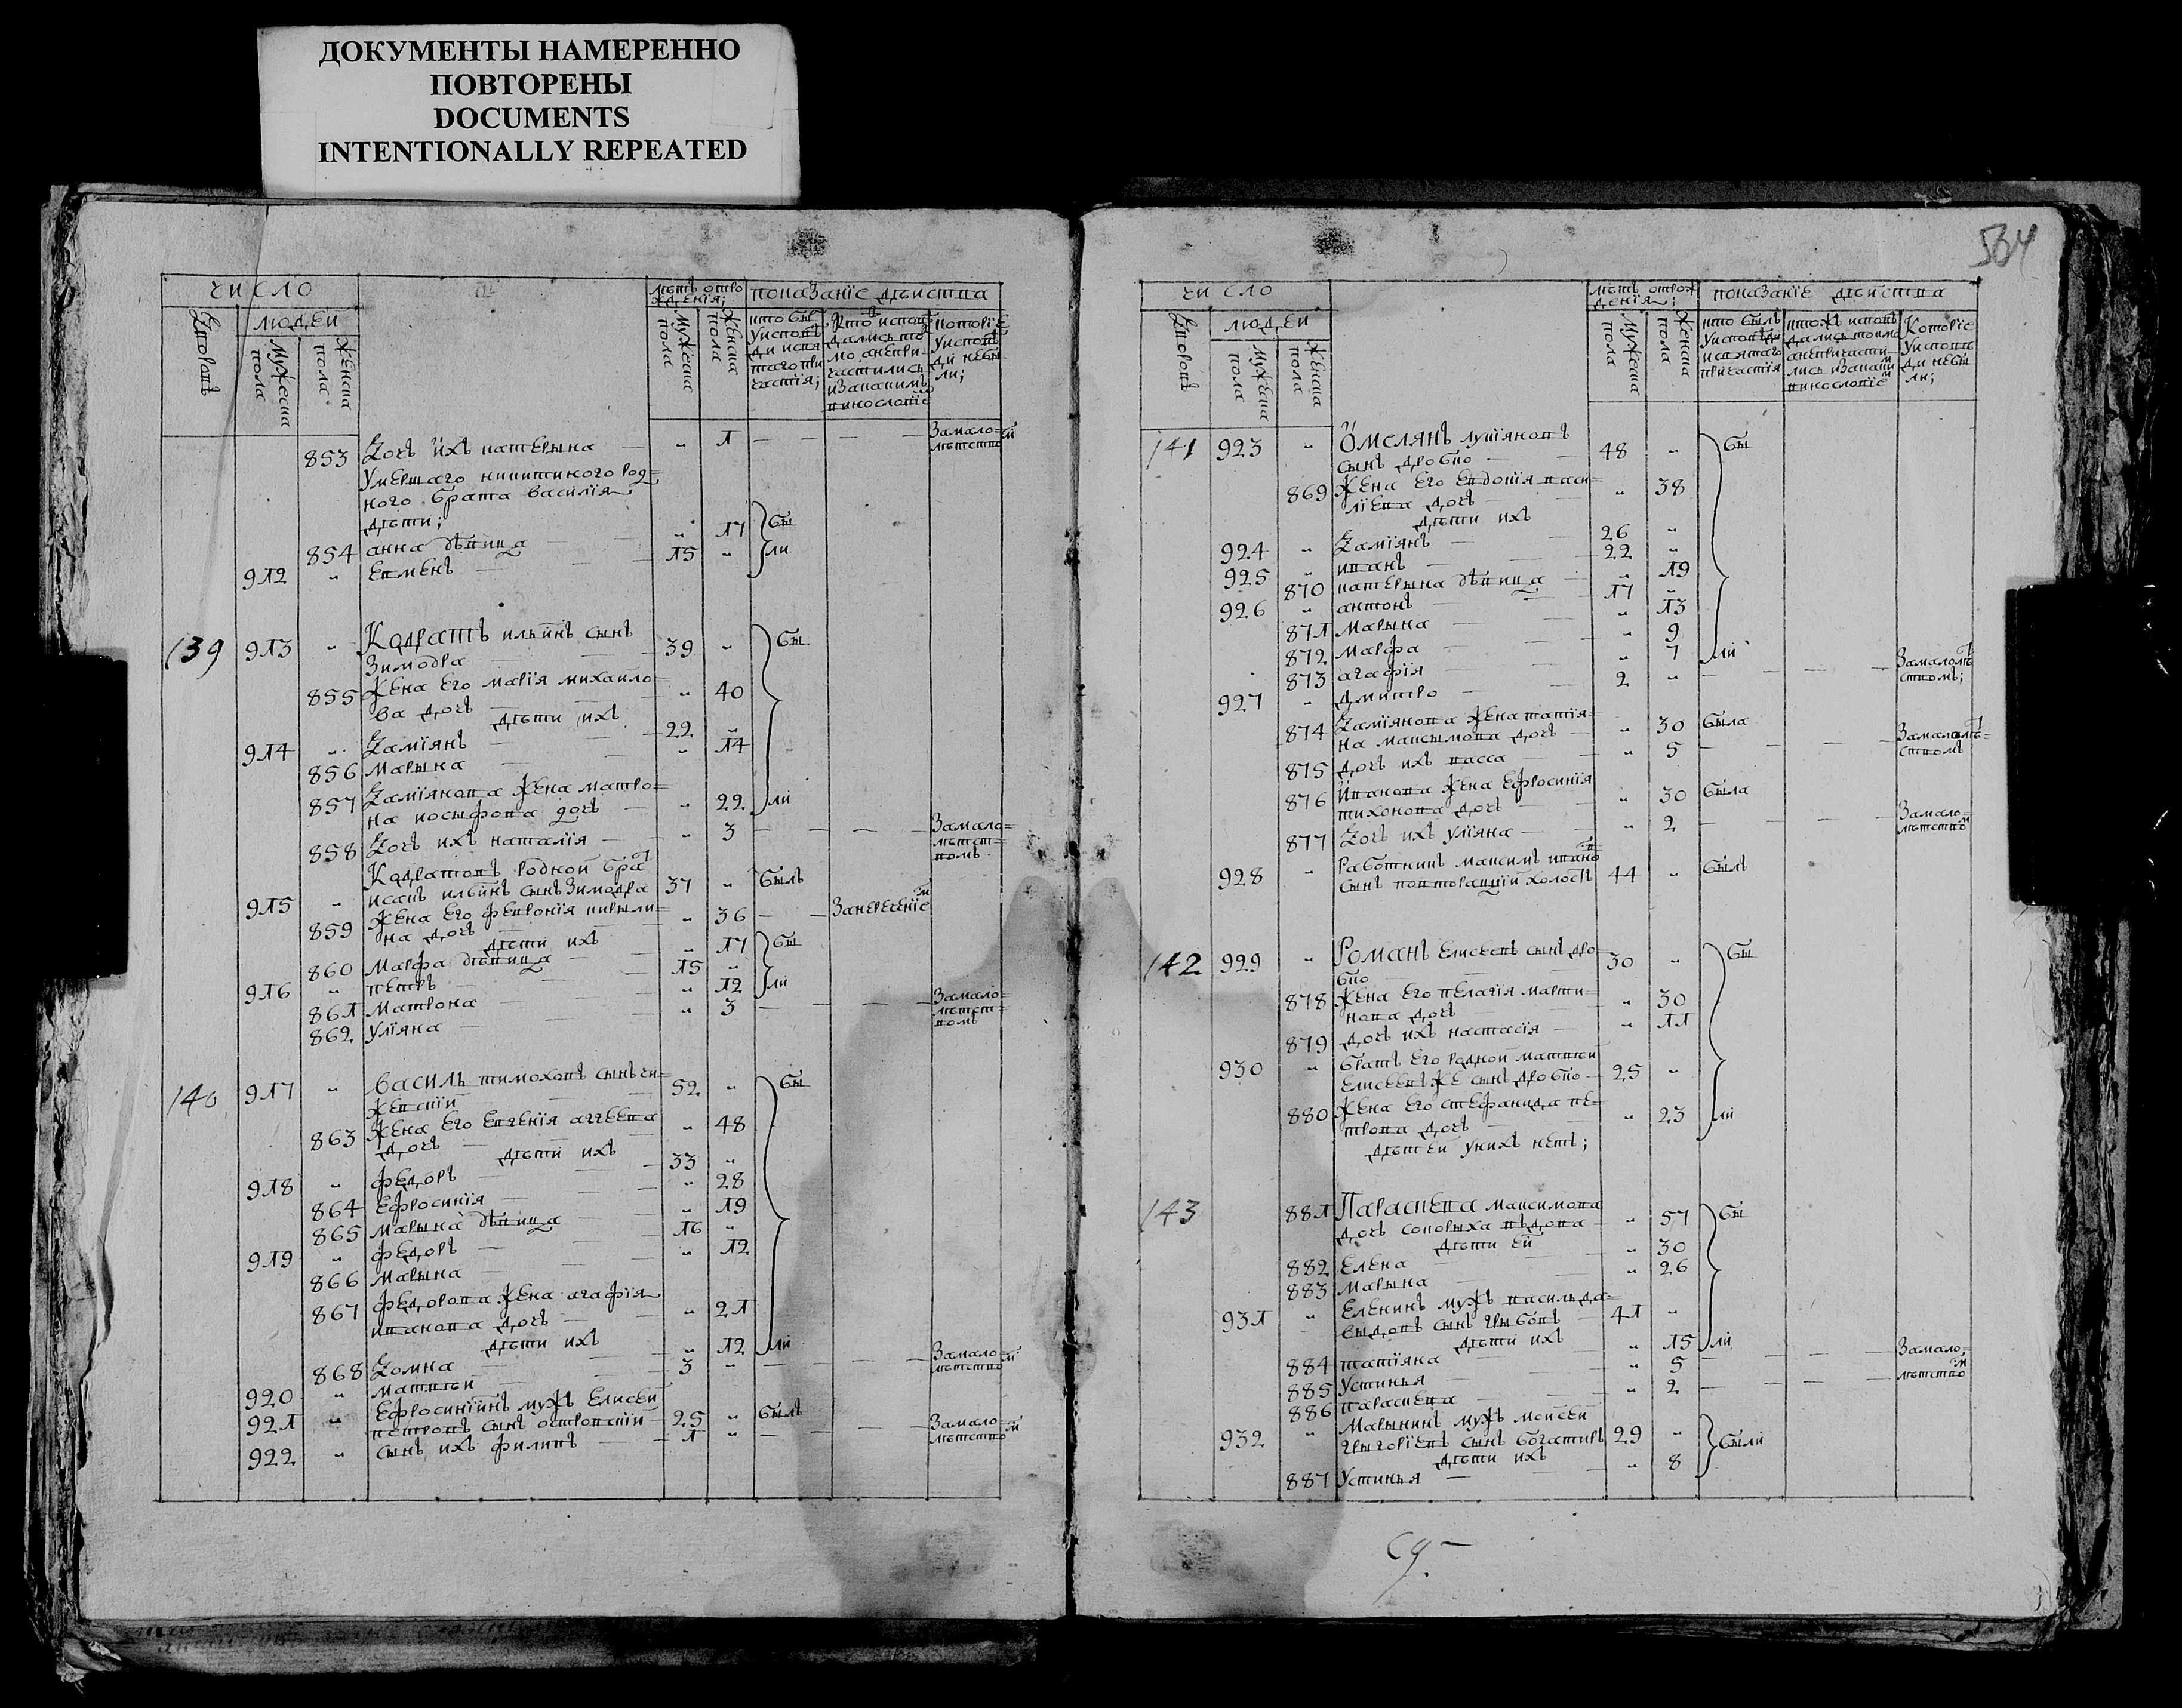 ДОКУМЕНТЫ НАМЕРЕННО
ПОВТОРЕНЫ
DOCUMENTS
INTENTIONALLY REPEATED
число
людей
лѣтъ отро
жденія;
показаніе дѣиства
дворовъ
мужеска
пола
женска
пола
мужеска
пола
женска
пола
кто бы
у исповѣ
ди и свя
таго при
частія;
кто исповѣ
дались то
мо а непри
частились
и за каким
винословіе
которіе
у исповѣ
ди небы
ли;
853 дочъ ихъ катерына „ 1 замало
лѣтство
умершаго никитиного род
ного брата василія
дѣти;
854 анна дѣвица „ 17 бы
912 „ евменъ 15 „ ли
139 913 „ Кодратъ ильинъ сынъ
зимодра 39 „ бы
855 жена его марія михаило
ва дочъ „ 40
дѣти ихъ
914 „ даміянъ 22 „
856 марына „ 14
857 даміянова жена матро
на иосыфова дочъ „ 22 ли
858 дочъ ихъ наталія „ 3 замало
лѣтст
вомъ
Кодратовъ родной брат
915 „ исакъ ильинъ сынъ зимодра 37 „ былъ
859 жена его февронія кирыли
на дочъ „ 36 занереченіем
дѣти ихъ
860 марфа дѣвица „ 17 бы
916 „ петръ 15 „
861 матрона „ 12 ли
862 уліяна „ 3 замало
лѣтст
вомъ
140 917 „ василь тимоховъ сынъ чи
жевскій 52 „ бы
863 жена его евгенія аггеева
дочъ „ 48
дѣти ихъ
918 „ федоръ 33 „
864 ефросинія „ 28
865 марына дѣвица „ 19
919 „ федоръ 16 „
866 марына „ 12
867 федорова жена агафія
иванова дочъ „ 21
дѣти ихъ
868 домна „ 12 ли
920 „ матвѣи 3 „ замало
лѣтство
921 „ ефросиніинъ мужъ елисеи
петровъ сынъ островскій 25 „ былъ
922 „ сынъ ихъ филипъ 1 „ замало
лѣтство
534
число
людей
лѣтъ отрож
денія;
показаніе дѣиства
дворовъ
мужеска
пола
женска
пола
мужеска
пола
женска
пола
кто былъ
у исповѣди
и святаго
причастія
ктожъ исповѣ
дались токмо
а непричасти
лись и за каким
винословіе
которіе
у исповѣ
ди небы
ли;
141 923 „ Омелянъ лукіяновъ
сынъ дробко 48 „ бы
869 жена его евдокія васи
лієва дочъ „ 38
дѣти ихъ
924 „ даміянъ 26 „
925 „ иванъ 22 „
870 катерына дѣвица „ 19
926 „ антонъ 17 „
871 марына „ 13
872 марфа „ 9
873 агафія „ 7 ли
927 „ дмитро 2 „ замалолѣт
ством;
874 даміянова жена татія
на максымова дочъ „ 30 была
875 дочъ ихъ васса „ 5 замалолѣт
ством
876 иванова жена ефросинія
тихонова дочъ „ 30 была
877 дочъ ихъ уліяна „ 2 замало
лѣтство
928 „ работникъ максимъ ивано
сынъ полторацкій холостъ 44 „ былъ
142 929 „ Романъ елисеевъ сынъ дро
бко 30 „ бы
878 жена его пелагія марти
нова дочъ „ 30
879 дочъ ихъ настасія „ 11
930 „ братъ его родной матвѣи
елисеевъ же сынъ дробко 25 „
880 жена его стефанида пе
трова дочъ „ 23 ли
дѣтеи у нихъ нетъ;
143 881 Параскева максимова
дочъ сопрыха вѣдова „ 57 бы
дѣти ей
882 елена „ 30
883 марына „ 26
931 „ еленинъ мужъ василь да
выдовъ сынъ грыбовъ 41 „
дѣти ихъ
884 татіяна „ 15 ли
885 устинья „ 5 замало
лѣтство
886 параскева „ 2
932 „ марынинъ мужъ моисеи
грыгоріевъ сынъ богатиръ 29 „ были
дѣти ихъ
887 устинья „ 8